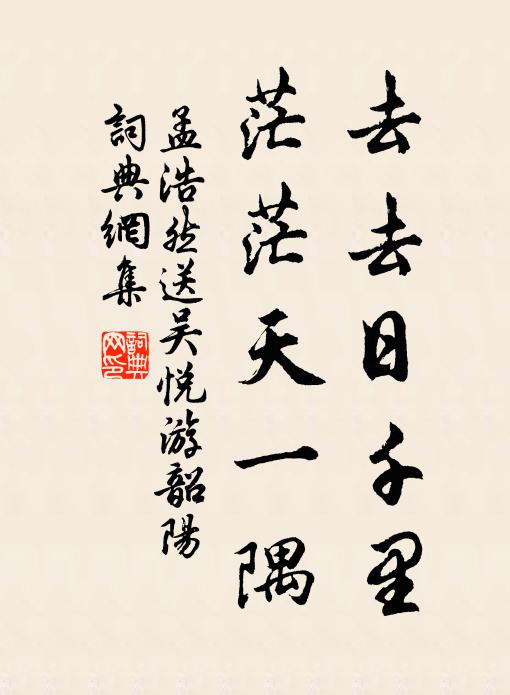 去去日千里
茫茫天一隅
孟浩然送吴悦游韶陽
詞典網集
詞典
网印